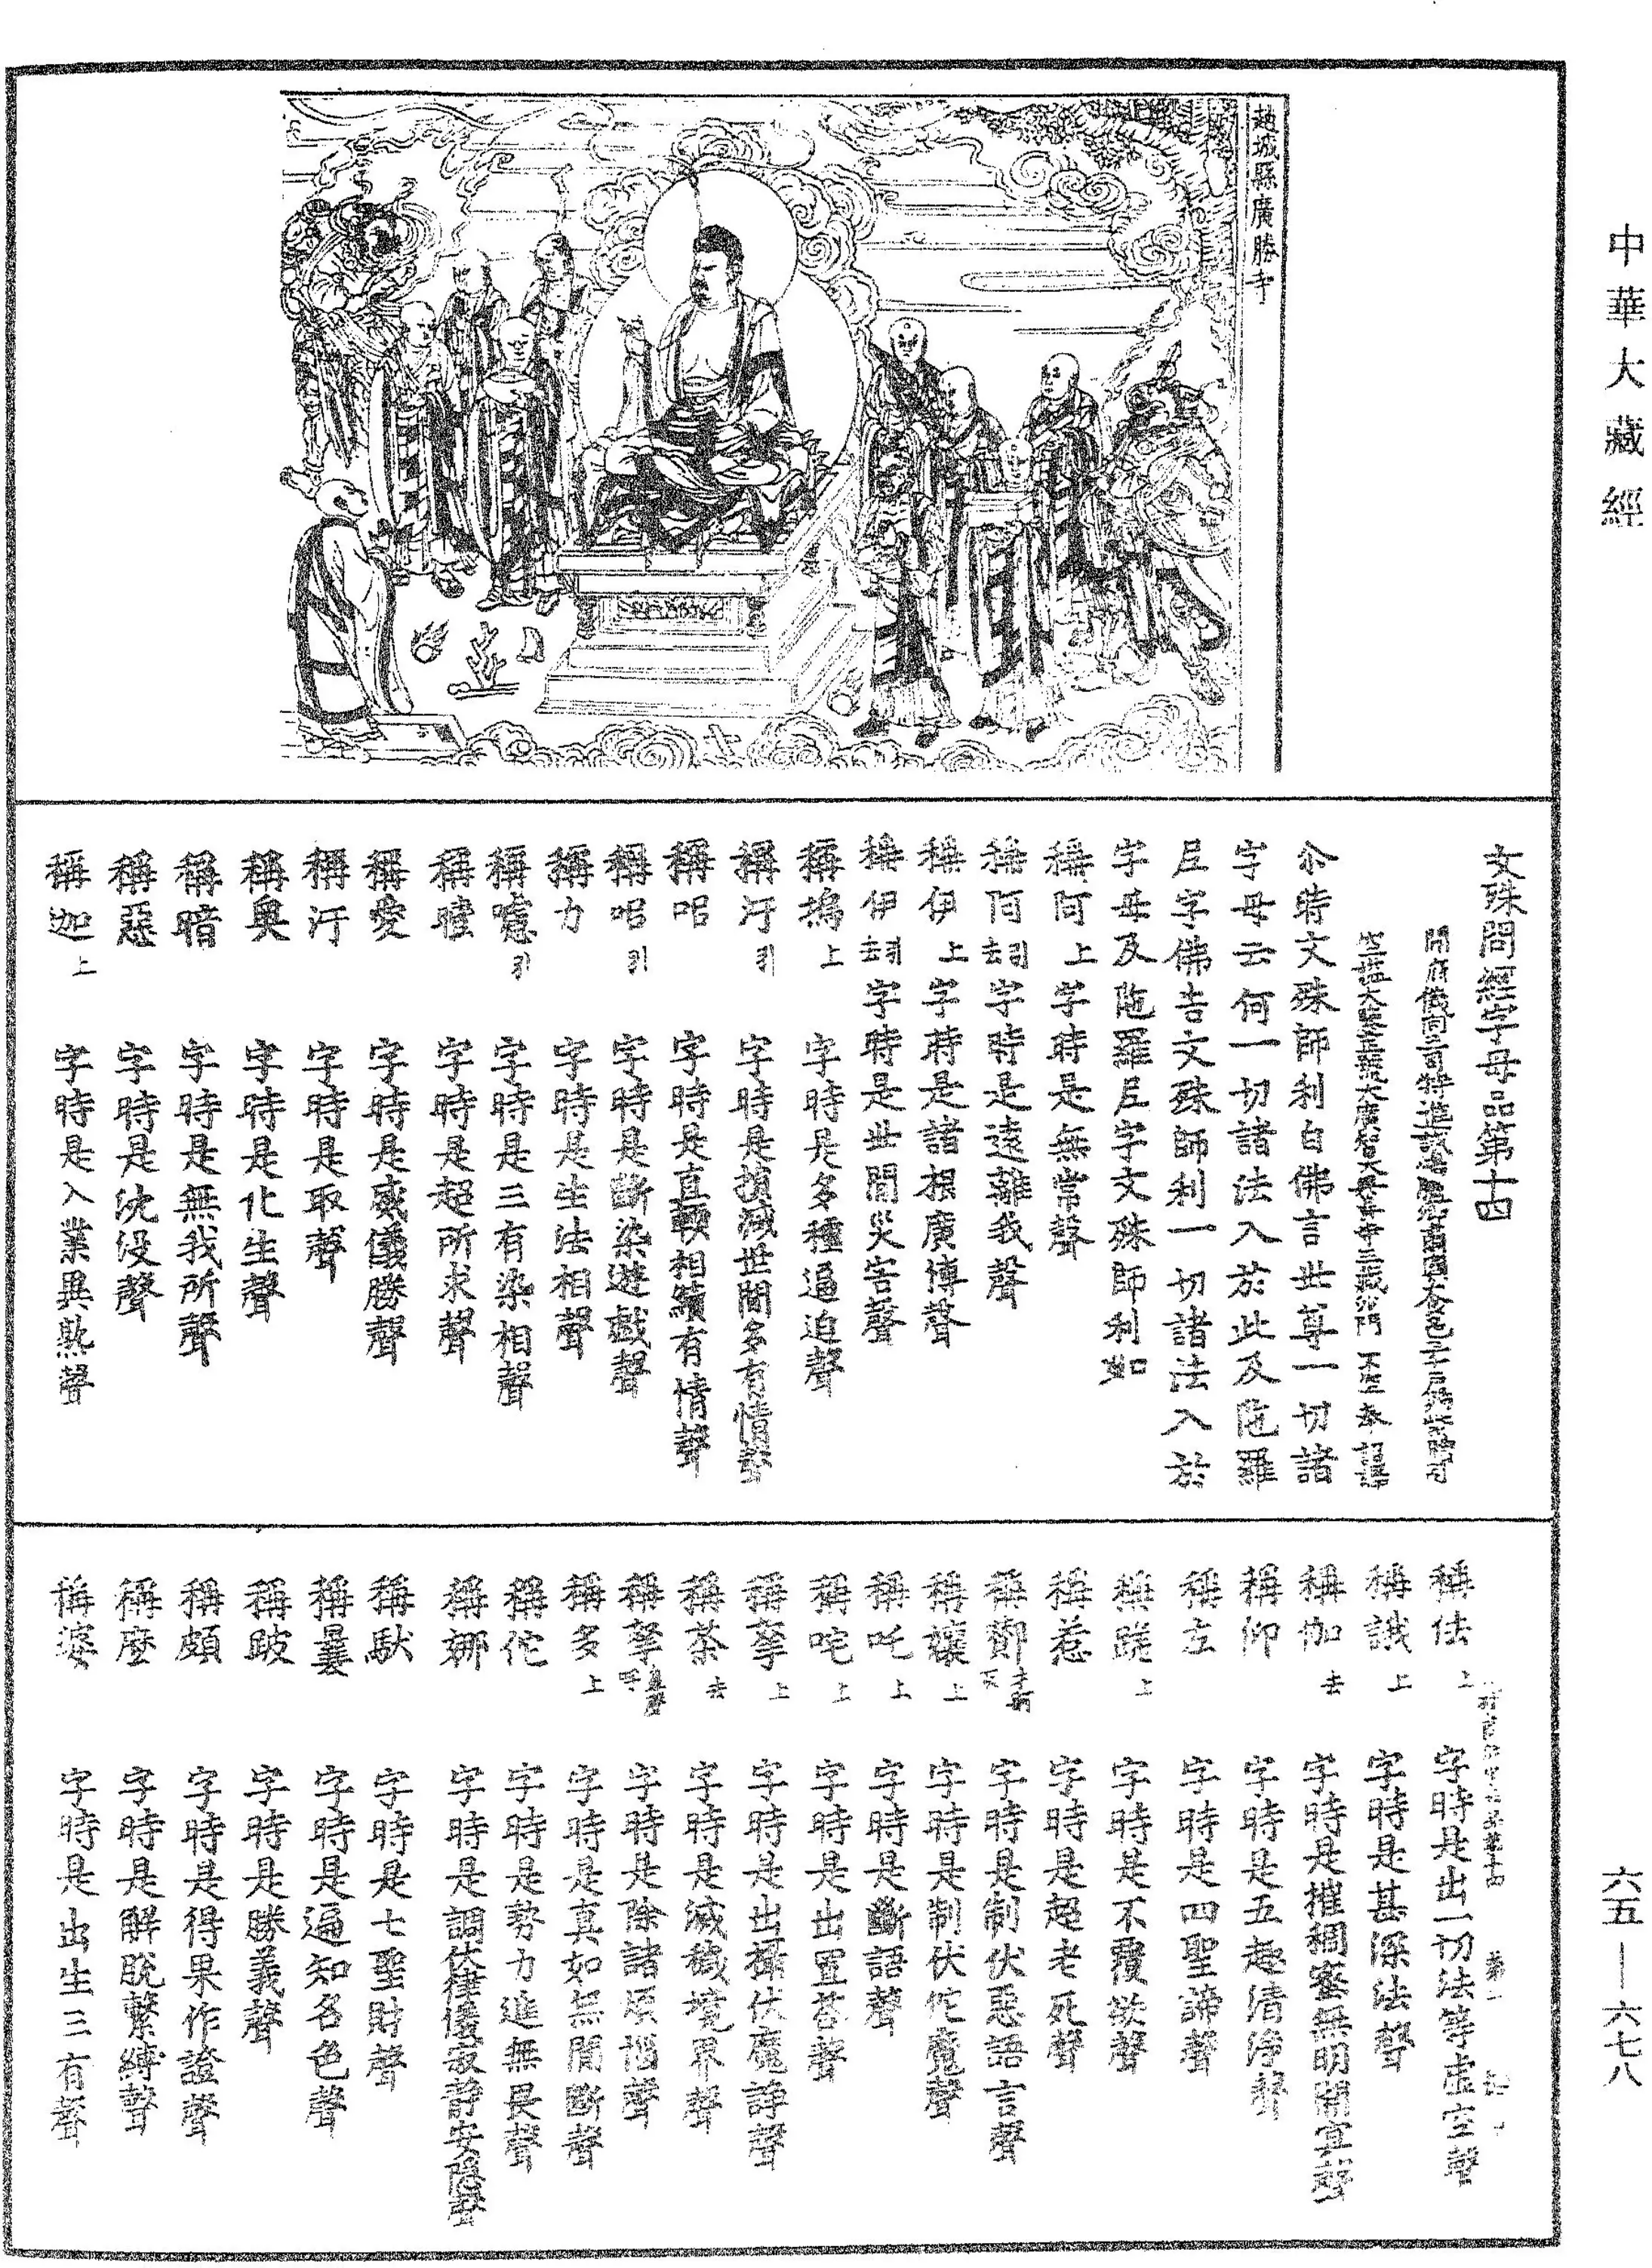 中華大藏經
趙城縣廣勝寺
文殊問經字母品第十四
開府儀同三司特進試鴻臚卿肅國公食邑三千戶賜紫贈司
空謚大鑒正號大廣智大興善寺三藏沙門不空奉詔譯
尒時文殊師利白佛言世尊一切諸
字母云何一切諸法入於此及陁羅
尼字佛告文殊師利一切諸法入於
字母及陁羅尼字文殊師利如
稱阿上字時是無常聲
稱阿引去字時是遠離我聲
稱伊上字時是諸根廣博聲
稱伊引去字時是世間災害聲
稱塢上字時是多種逼迫聲
稱汙引字時是損減世間多有情聲
稱呂字時是直耎相續有情聲
稱呂引字時是斷染遊戲聲
稱力字時是生法相聲
稱嚧引字時是三有染相聲
稱曀字時是超所求聲
稱愛字時是威儀勝聲
稱汙字時是取聲
稱奧字時是化生聲
稱暗字時是無我所聲
稱惡字時是沈沒聲
稱迦上字時是入業異熟聲
稱佉上字時是出一切法等虛空聲
稱誐上字時是甚深法聲
稱伽去字時是摧稠密無明闇冥聲
稱仰字時是五趣清淨聲
稱左字時是四聖諦聲
稱蹉上字時是不覆欲聲
稱惹字時是超老死聲
稱鄼字時是制伏惡語言聲
稱孃上字時是制伏佗魔聲
稱吒上字時是斷語聲
稱咤上字時是出置荅聲
稱拏上字時是出攝伏魔諍聲
稱荼去字時是滅穢境界聲
稱拏字時是除諸煩惱聲
稱多上字時是真如無間斷聲
稱佗字時是勢力進無畏聲
稱娜字時是調伏律儀寂靜安隱聲
稱馱字時是七聖財聲
稱曩字時是遍知名色聲
稱跛字時是勝義聲
稱頗字時是得果作證聲
稱麼字時是解脫繫縛聲
稱婆字時是出生三有聲
六五—六七八